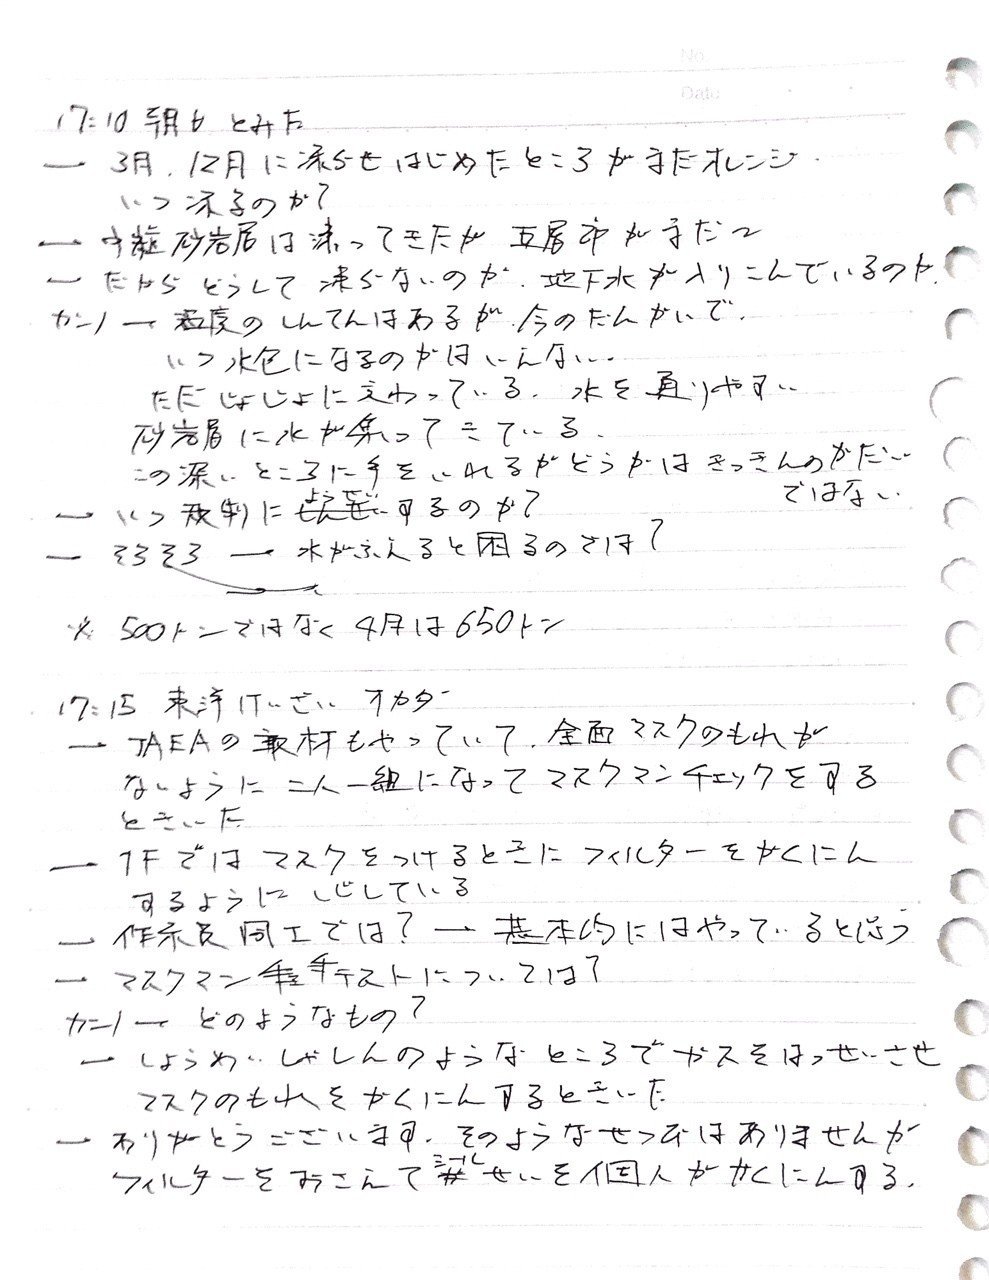 No.
Date
17:10 朝日 とみた
— 3月、12月に凍らせはじめたところがまだオレンジ.
いつ凍るのか?
— 中粒砂岩層は凍ってきたが 互層部がまだ〜
— だからどうして凍らないのか、地下水が入りこんでいるのか.
カンノ — 程度のしんてんはあるが、今のだんかいで、
いつ水色になるのかはいえない..
ただじょじょに変わっている、水を通りやすい
砂岩層に水が集ってきている、
この深いところに手をいれるかどうかはきっきんのかだい
ではない
— いつ規制に ようせい するのか?
— そろそろ — 水がふえると困るのでは?
※ 500トンではなく 4月は650トン
17:15 東洋けいざい オカダ
— JAEAの取材もやっていて、全面マスクのもれが
ないように 二人一組になってマスクマンチェックをする
ときいた
— 1Fではマスクをつけるときに フィルターをかくにん
するように しじしている
— 作業員同士では? — 基本的にはやっていると思う
— マスクマン テストについては?
カンノ — どのようなもの?
— しょうめいしゃしんのようなところでガスをはっせいさせ
マスクのもれをかくにんするときいた
— ありがとうございます、そのようなせつびはありませんが
フィルターをおさえて シール せいを個人がかくにんする.